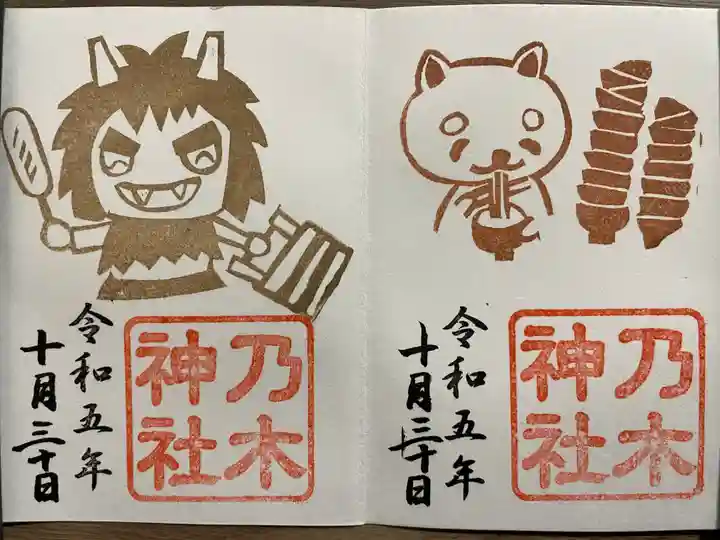 令和五年
十月三十日
乃木
神社
令和五年
十月三十日
乃木
神社